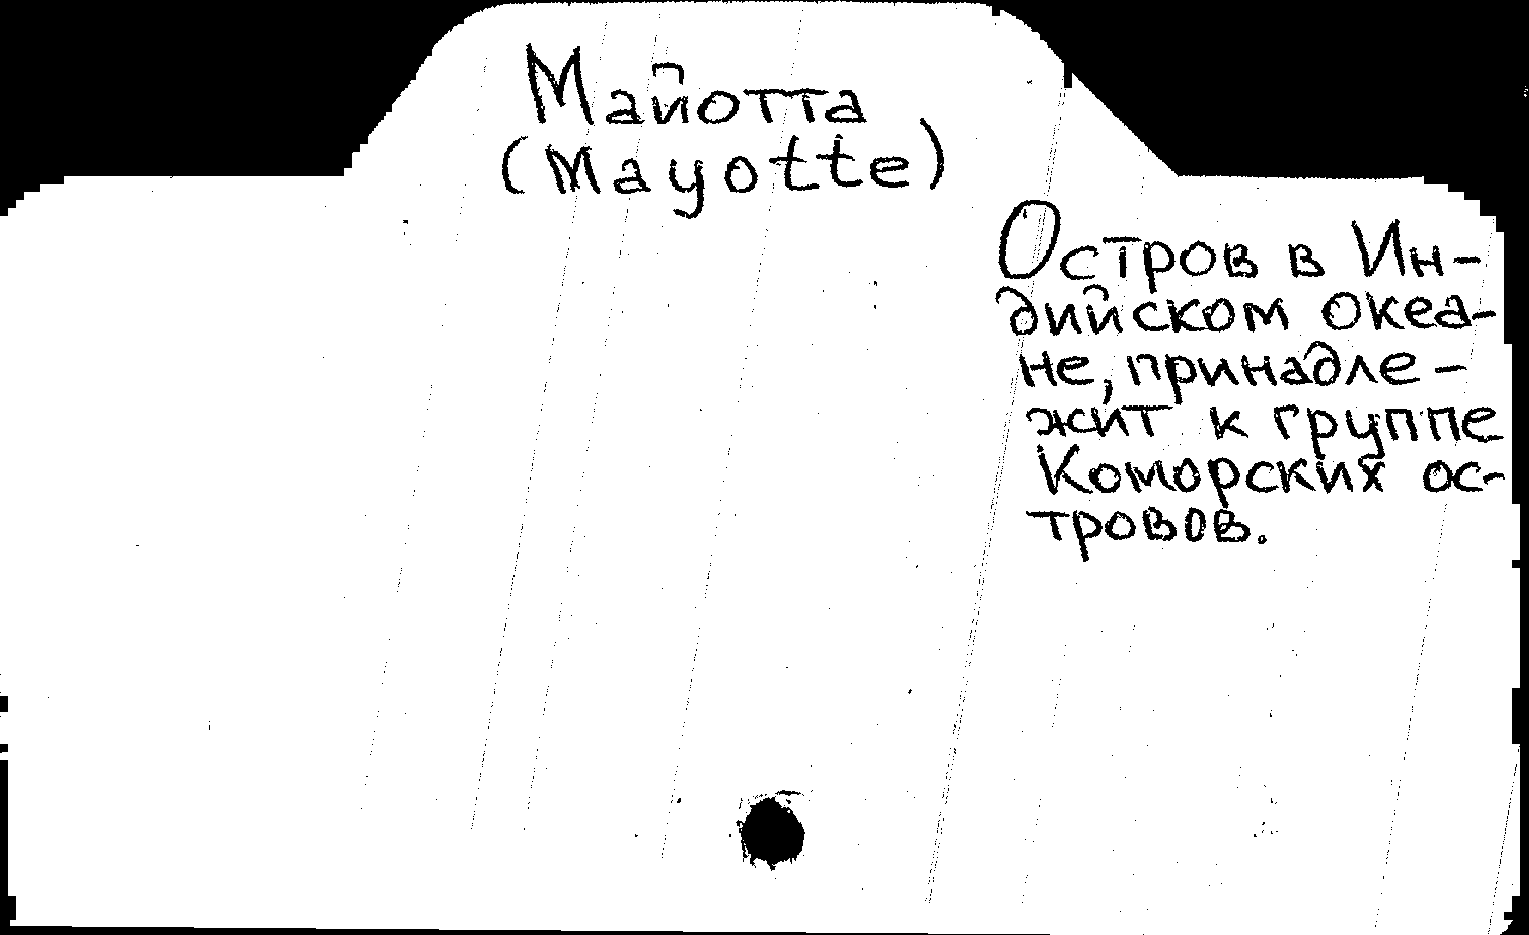 Майотта
(Mayotte)
Остров в Ин-
дийском океа-
не, принадле-
жит к группе
Коморских ос-
тровов.